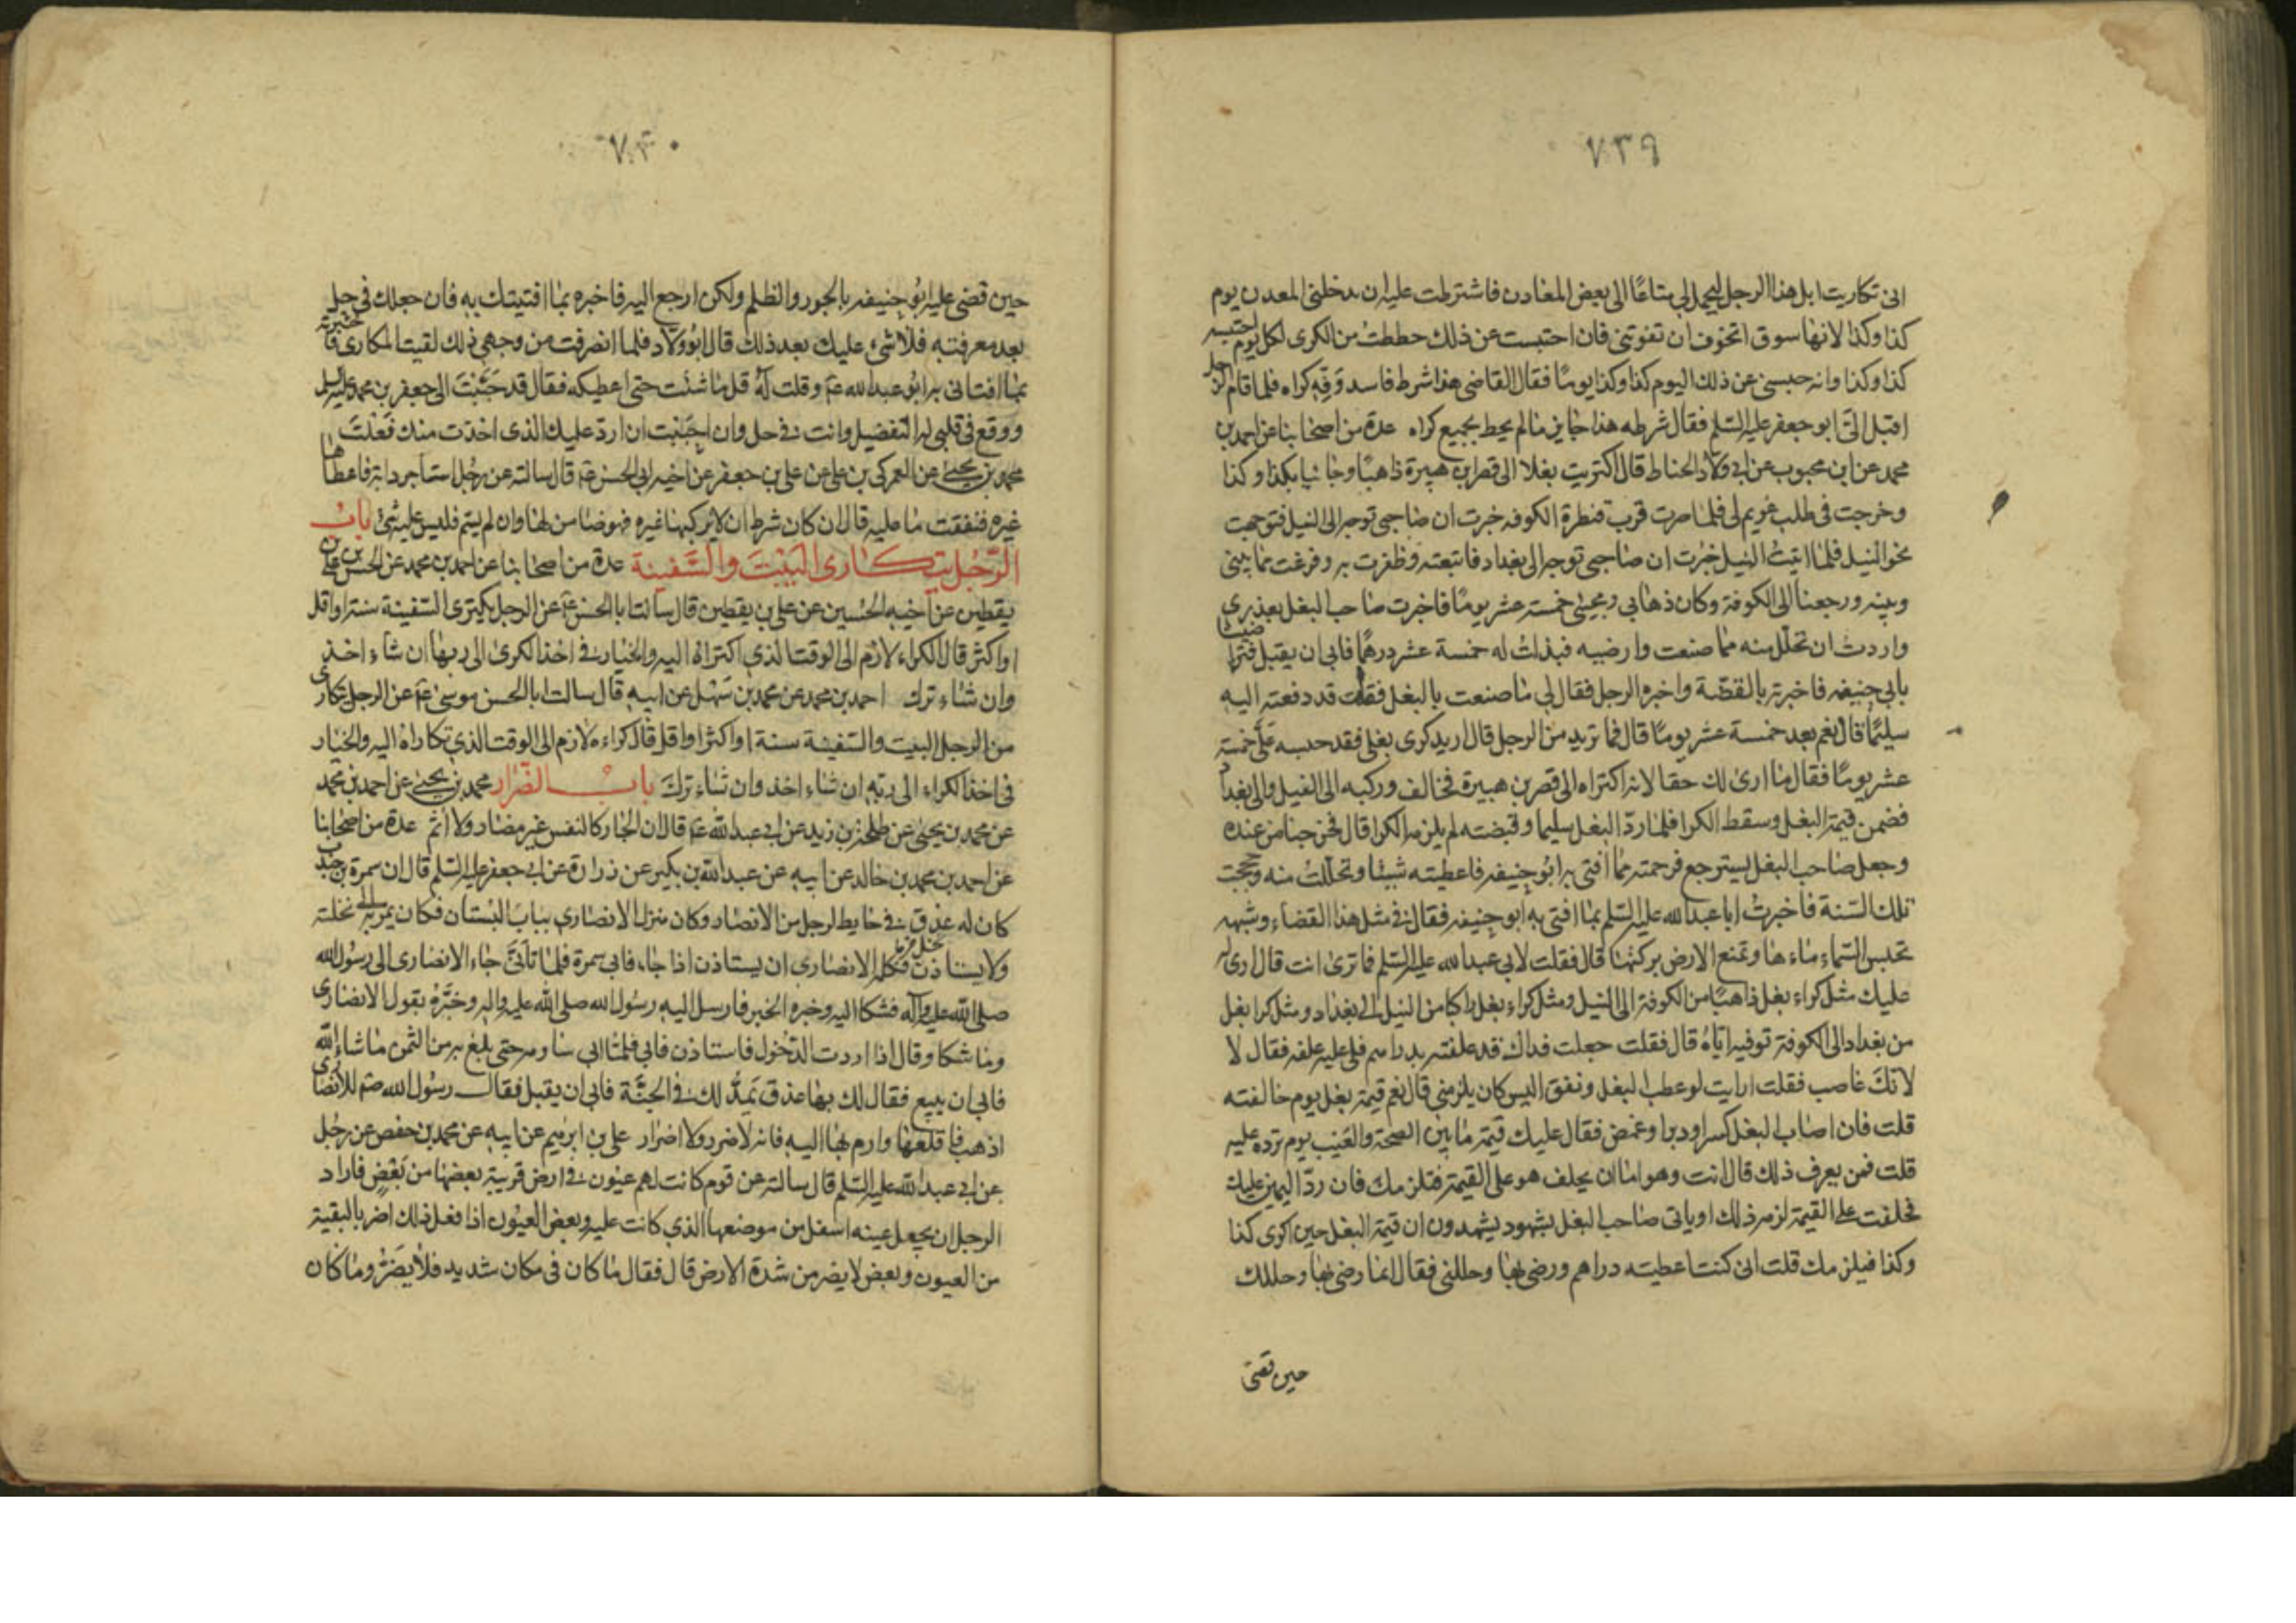 ٧٣٩
انى تكاريت ابل هذا الرجل ليحمل لى متاعًا الى بعض المعادن فاشترطت عليه ان يدخلنى المعدن يوم
كذا وكذا لانها سوق اتخوف ان تفوتنى فان احتبست عن ذلك حططت من الكرى لكل يوم احتبسه
كذا وكذا وانه حبسنى عن ذلك اليوم كذا وكذا يومًا فقال القاضى هذا شرط فاسد وفّه كراه فلما قام الرجل
اقبل الىّ ابو جعفر عليه السلم فقال شرطه هذا جايز ما لم يحط بجميع كراه عدة من اصحابنا عن احمد بن
محمد عن ابن محبوب عن ابى ولاد الحناط قال اكتريت بغلا الى قصر ابن هبيرة ذاهبًا وجائيا بكذا وكذا
وخرجت فى طلب غريم لى فلما صرت قرب قنطرة الكوفه خبرت ان صاحبى توجه الى النيل فتوجهت
نحو النيل فلما اتيت النيل خبرت ان صاحبى توجه الى بغداد فاتبعته وظفرت به وفرغت مما بينى
وبينه ورجعنا الى الكوفة وكان ذهابى ومجيئى خمسة عشر يومًا فاخبرت صاحب البغل بعذرى
واردت ان تحلل منه مما صنعت وارضيه فبذلت له خمسة عشر درهمًا فابى ان يقبل فتراضينا
بابى حنيفه فاخبرته بالقصّة واخبره الرجل فقال لى ما صنعت بالبغل فقلت قد دفعته اليه
سليمًا قال نعم بعد خمسة عشر يومًا قال فما تريد من الرجل قال اريد كرى بغلى فقد حبسه علّى خمسة
عشر يومًا فقال ما ارى لك حقا لانه اكتراه الى قصر بن هبيرة فخالف وركبه الى النيل والى بغداد
فضمن قيمة البغل وسقط الكرا فلما ردّ البغل سليما وقبضته لم يلزمه الكرا قال فخرجنا من عنده
وجعل صاحب البغل يسترجع فرحمته مما افتى به ابو حنيفه فاعطيته شيئا وتحللت منه وحججت
تلك السنة فاخبرت ابا عبد الله عليه السلم بما افتى به ابو حنيفه فقال فى مثل هذا القضاء وشبهه
تحبس السماء ماءها وتمنع الارض بركتها قال فقلت لابى عبد الله عليه السلم فما ترى انت قال ارى له
عليك مثل كراء بغل ذاهبًا من الكوفة الى النيل ومثل كراء بغل راكبا من النيل الى بغداد ومثل كرا بغل
من بغداد الى الكوفة توفيه ايّاه قال فقلت جعلت فداك قد علفته بدراهم فلى عليه علفه فقال لا
لانك غاصب فقلت ارايت لو عطب البغل ونفق اليس كان يلزمنى قال نعم قيمة بغل يوم خالفته
قلت فان اصاب البغل كسر او دبر او غمض فقال عليك قيمة ما بين الصحة والعيب يوم ترده عليه
قلت فمن يعرف ذلك قال انت وهو اما ان يحلف هو على القيمة فتلزمك فان ردّ اليمين عليك
فحلفت على القيمة لزمه ذلك او ياتى صاحب البغل بشهود يشهدون ان قيمة البغل حين اكرى كذا
وكذا فيلزمك قلت انى كنت اعطيته دراهم ورضى بها وحللنى فقال انما رضى بها وحللك
حين قضى
٧٤٠
حين قضى عليه ابو حنيفه بالجور والظلم ولكن ارجع اليه فاخبره بما افتيتك به فان جعلك فى حل
بعد معرفته فلا شىء عليك بعد ذلك قال ابو ولاد فلما انصرفت من وجهى ذلك لقيت المكارى فاخبرته
بما افتانى به ابو عبد الله عم وقلت له قل ما شئت حتى اعطيكه فقال قد حببت الى جعفر بن محمد عليه السلم
ووقع فى قلبى له التفضيل وانت فى حل وان احببت ان اردّ عليك الذى اخذت منك فعلت
محمد بن يحيى عن العمركى بن على عن على بن جعفر عن اخيه ابى الحسن عم قال سالته عن رجل استاجر دابة فاعطاها
غيره فنفقت ما عليه قال ان كان شرط ان لا يركبها غيره فهو ضامن لها وان لم يتم فليس عليه شئ باب
الرّجل يتكارى البَيْتَ والسّفينة عدة من اصحابنا عن احمد بن محمد عن الحسن بن على بن
يقطين عن اخيه الحسين عن على بن يقطين قال سالت ابا الحسن عم عن الرجل يكترى السفينة سنة او اقل
او اكثر قال الكراء لازم الى الوقت الذى اكتراه اليه والخيار فى اخذ الكرى الى ربها ان شاء اخذ
وان شاء ترك احمد بن محمد عن محمد بن سهل عن ابيه قال سالت ابا الحسن موسى عم عن الرجل يتكارى
من الرجل البيت والسفينة سنة او اكثر او اقل قال كراءه لازم الى الوقت الذى تكاراه اليه والخيار
فى اخذ الكراء الى ربه ان شاء اخذ وان شاء ترك باب الضّرار محمد بن يحيى عن احمد بن محمد
عن محمد بن يحيى عن طلحة بن زيد عن ابى عبد الله عم قال ان الجار كالنفس غير مضار ولا اثم عدة من اصحابنا
عن احمد بن محمد بن خالد عن ابيه عن عبد الله بن بكير عن زرارة عن ابى جعفر عليه السلم قال ان سمرة بن جندب
كان له عذق فى حايط لرجل من الانصار وكان منزل الانصارى بباب البستان فكان يمر به الى نخلته
ولا يستاذن فكلمه الانصارى ان يستاذن اذا جاء فابى سمرة فلما تابّى جاء الانصارى الى رسول الله
صلى الله عليه وآله فشكا اليه وخبره الخبر فارسل اليه رسول الله صلى الله عليه واله وخبّره بقول الانصارى
وما شكا وقال اذا اردت الدخول فاستاذن فابى فلما ابى ساومه حتى بلغ به من الثمن ما شاء الله
فابى ان يبيع فقال لك بها عذق يمدّ لك فى الجنّة فابى ان يقبل فقال رسول الله صم للانصارى
اذهب فاقلعها وارم بها اليه فانه لا ضرر ولا اضرار على بن ابرهيم عن ابيه عن محمد بن حفص عن رجل
عن ابى عبد الله عليه السلم قال سالته عن قوم كانت لهم عيون فى ارض قريبة بعضها من بعض فاراد
الرجل ان يجعل عينه اسفل من موضعها الذى كانت عليه وبعض العيون اذا فعل ذلك اضر بالبقية
من العيون وبعض لا يضر من شدة الارض قال فقال ما كان فى مكان شديد فلا يضر وما كان